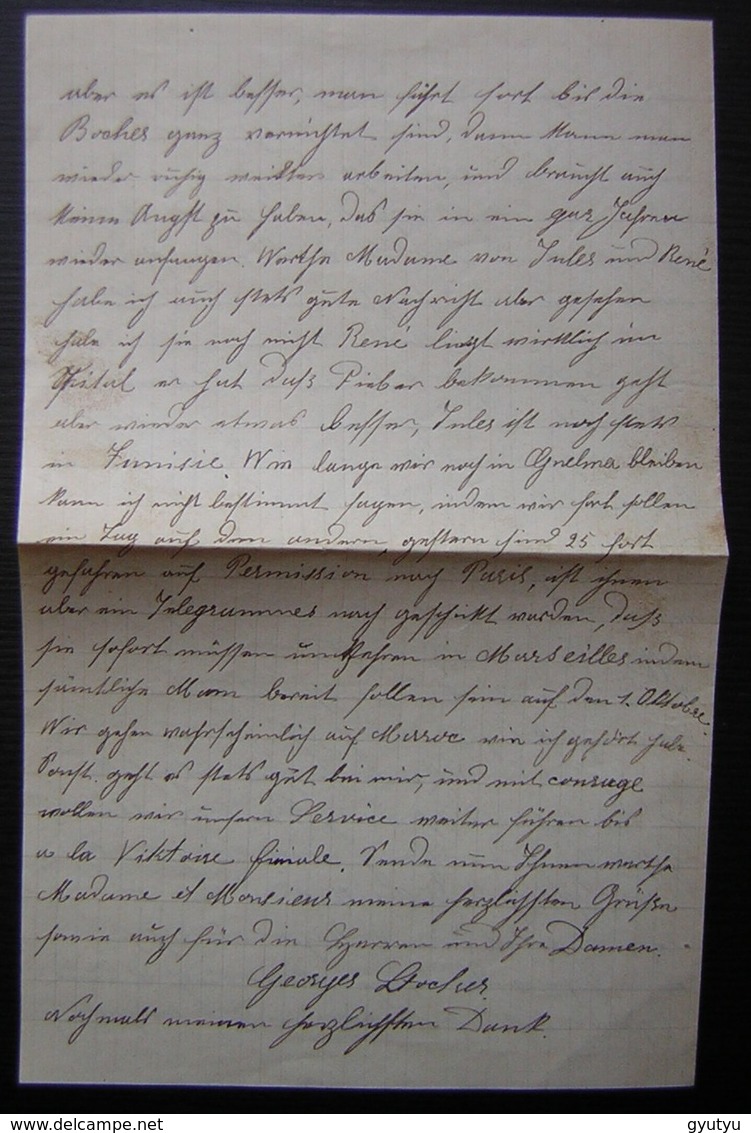 aber es ist besser, man führt fort bis die
Boches ganz vernichtet sind, dann kann man
wieder ruhig weiter arbeiten, und braucht auch
keine Angst zu haben, das sie in ein paar Jahren
wieder anfangen. Werthe Madame von Jules und René
habe ich auch stets gute Nachricht aber gesehen
habe ich sie noch nicht René liegt wirklich im
Spital er hat daß Fieber bekommen geht
aber wieder etwas besser, Jules ist noch stets
in Tunisie. Wie lange wir noch in Guelma bleiben
kann ich nicht bestimmt sagen, indem wir fort sollen
ein Tag auf dem andern, gestern sind 25 fort
gefahren auf Permission nach Paris, ist ihnen
aber ein Telegrammes nach geschickt worden, daß
sie sofort müssen umkehren in Marseilles indem
sämtliche Mann bereit sollen sein auf den 1. Oktobre.
Wir gehen wahrscheinlich auf Maroc wie ich gehört habe.
Sonst geht es stets gut bei mir, und mit courage
wollen wir unsern Service weiter führen bis
a la Viktoire finale. Sende nun Ihnen werthe
Madame et Monsieur meine herzlichsten Grüße
sowie auch für die Herren und Ihre Damen.
Georges
Nochmals meinen herzlichsten Dank.
gyutyu